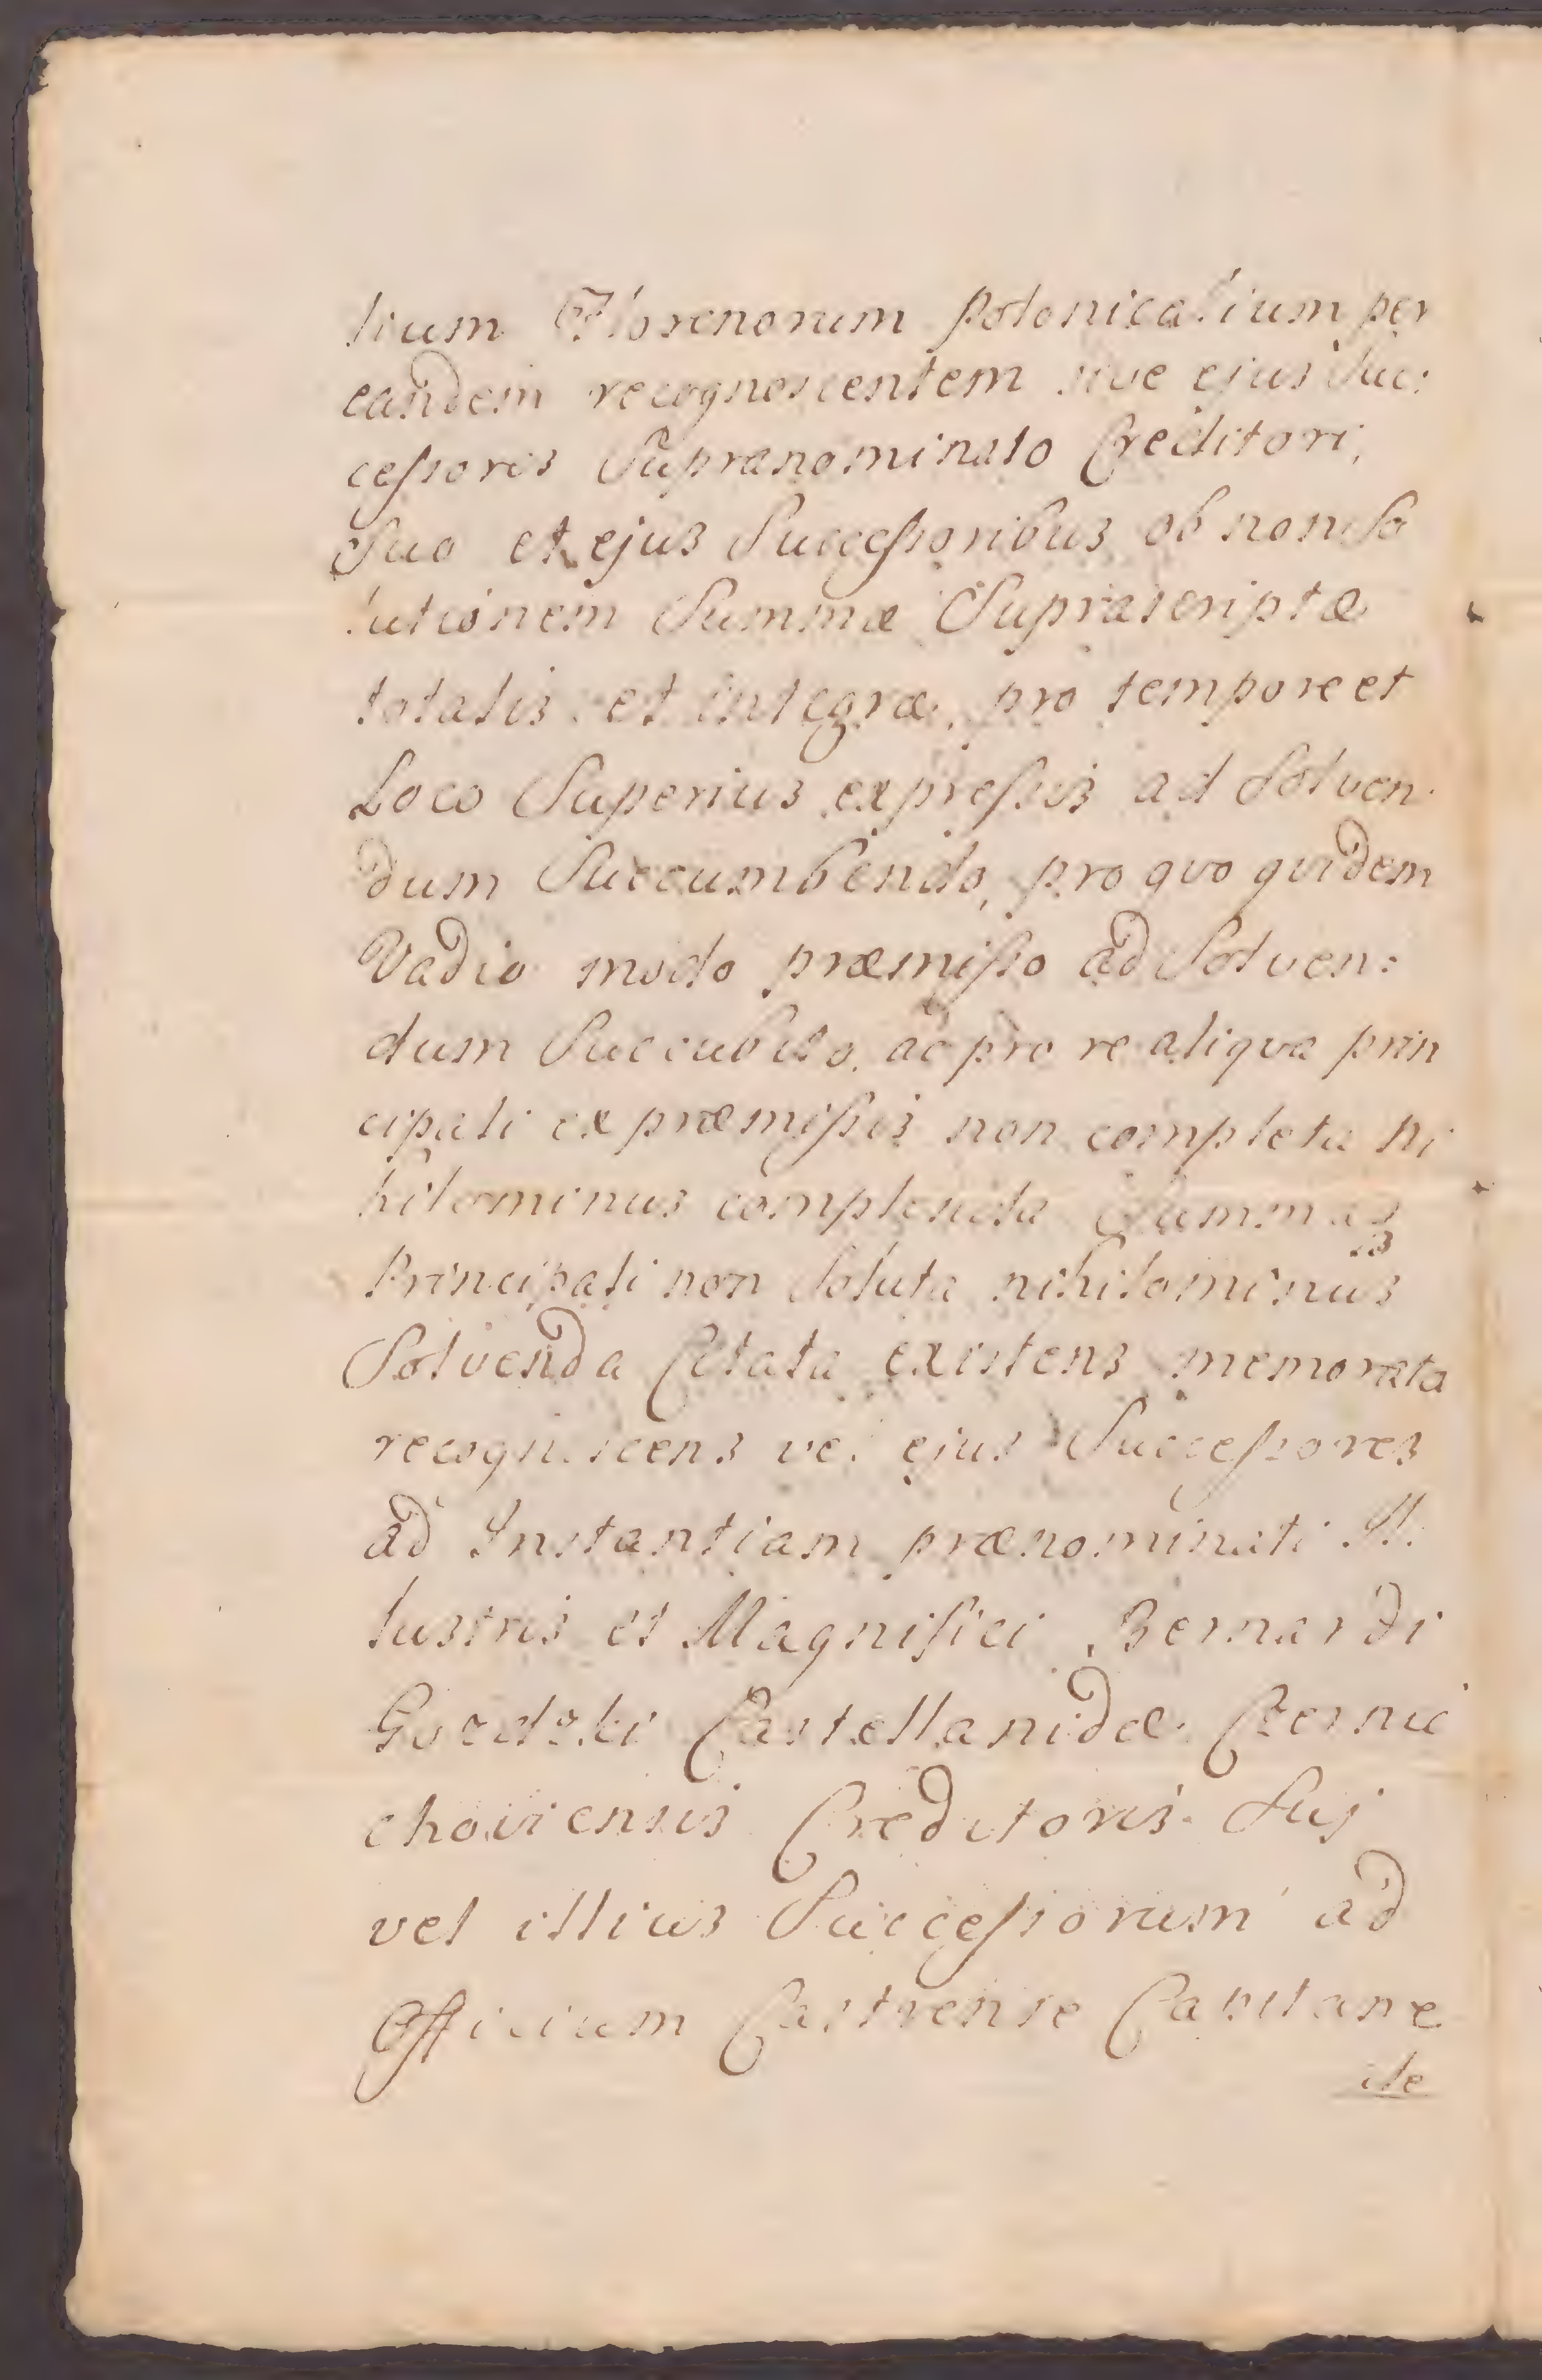 lium Florenorum polonicalium per
eandem recognoscentem sive ejus Suc:
cessores Supranominato Creditori,
Suo et ejus Successoribus ob non so
lutionem Summæ Suprascriptæ
totalis et integræ, pro tempore et
Loco Superius expressis ad Solven
dum Succumbendo, pro quo quidem
Vadio modo præmisso ad Solven:
dum Succubito, ac pro re aliqua prin
cipali ex præmissis non completa ni
hilominus complenda Summaq3
Principali non Soluta nihilominus
Solvenda Citata existens memorata
recognoscens vel ejus Successores
ad Instantiam prænominati Il
lustris et Magnifici Bernardi
Gozdzki Castellanidæ Czernie
choviensis Creditoris Sui
vel illius Successorum ad
Officium Castrense Capitane
ale